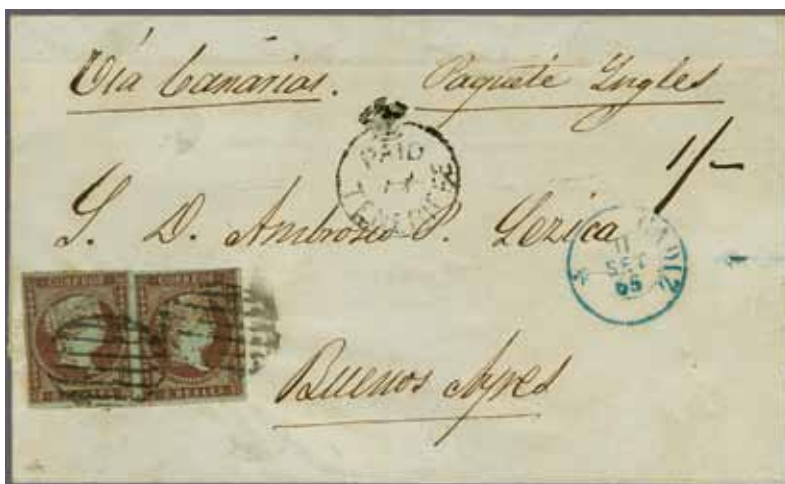 Vía Canarias. Paquete Ingles
PAID
TENERIFFE
1/-
S. D. Ambrosio P. Lezica
CADIZ
11
SET
65
CORREOS CORREOS
Buenos Ayres